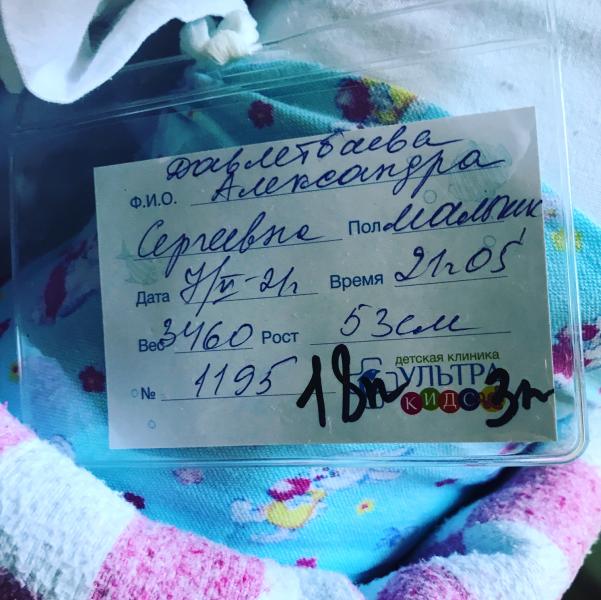 Давлетбаева
Ф.И.О. Александра
Сергеевна Пол мальчик
Дата Время 21ч05'
Вес 3460 Рост 53см
№ 1195
детская клиника
УЛЬТРА
КИДС
18п 3п